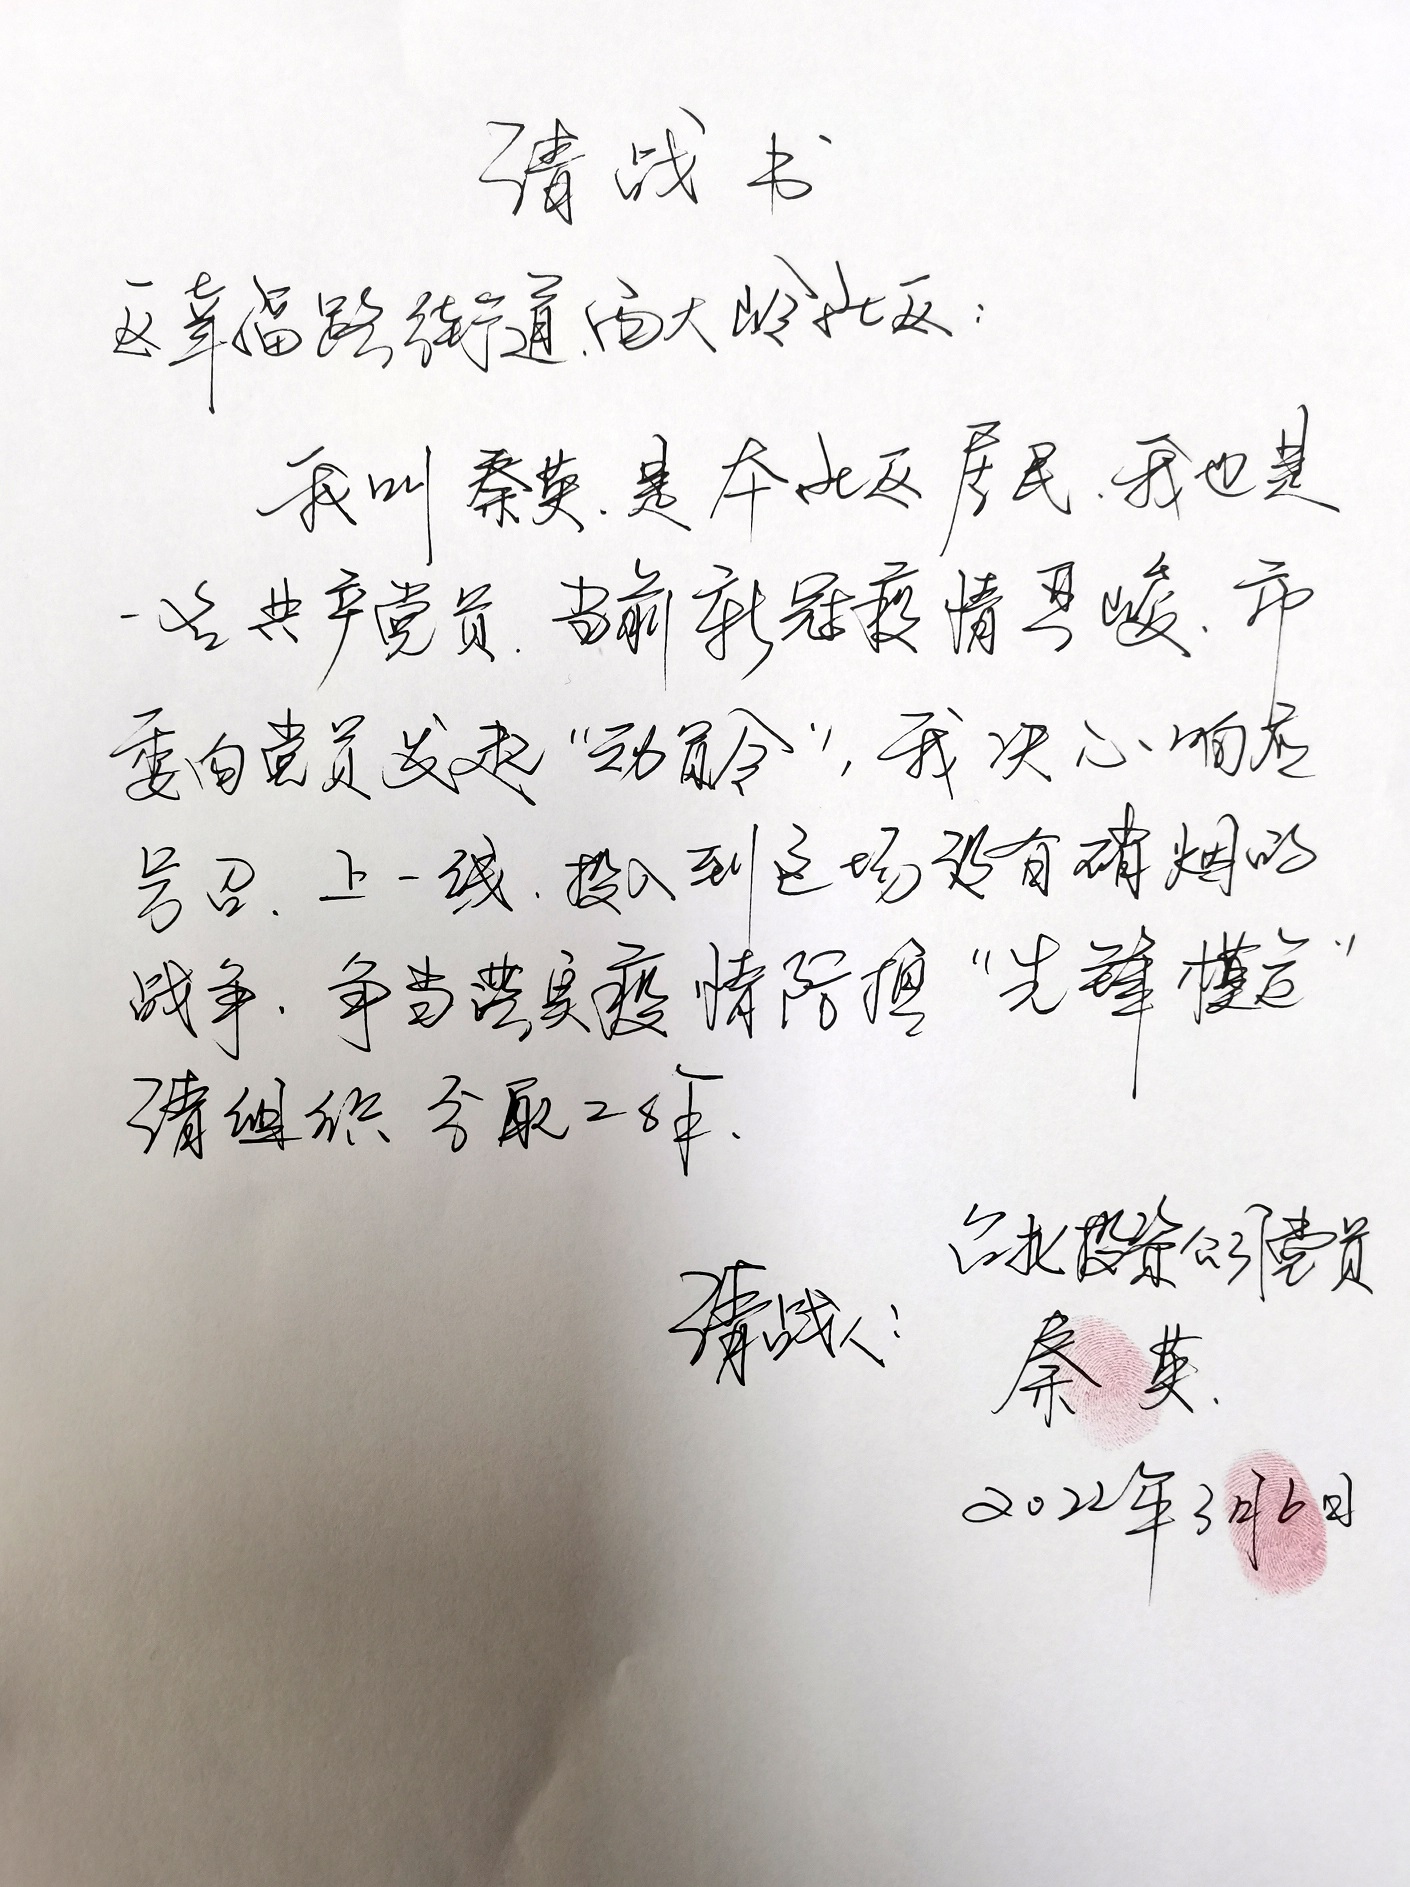 请战书
区幸福路街道、西大岭社区：
我叫秦英.是本社区居民.我也是
一名共产党员.当前新冠疫情严峻.市
委向党员发起“动员令”，我决心响应
号召.上一线.投入到这场没有硝烟的
战争.争当落实疫情防控“先锋模范”
请组织
台北投资公司党员
请战人：
秦英.
2022年3月6日